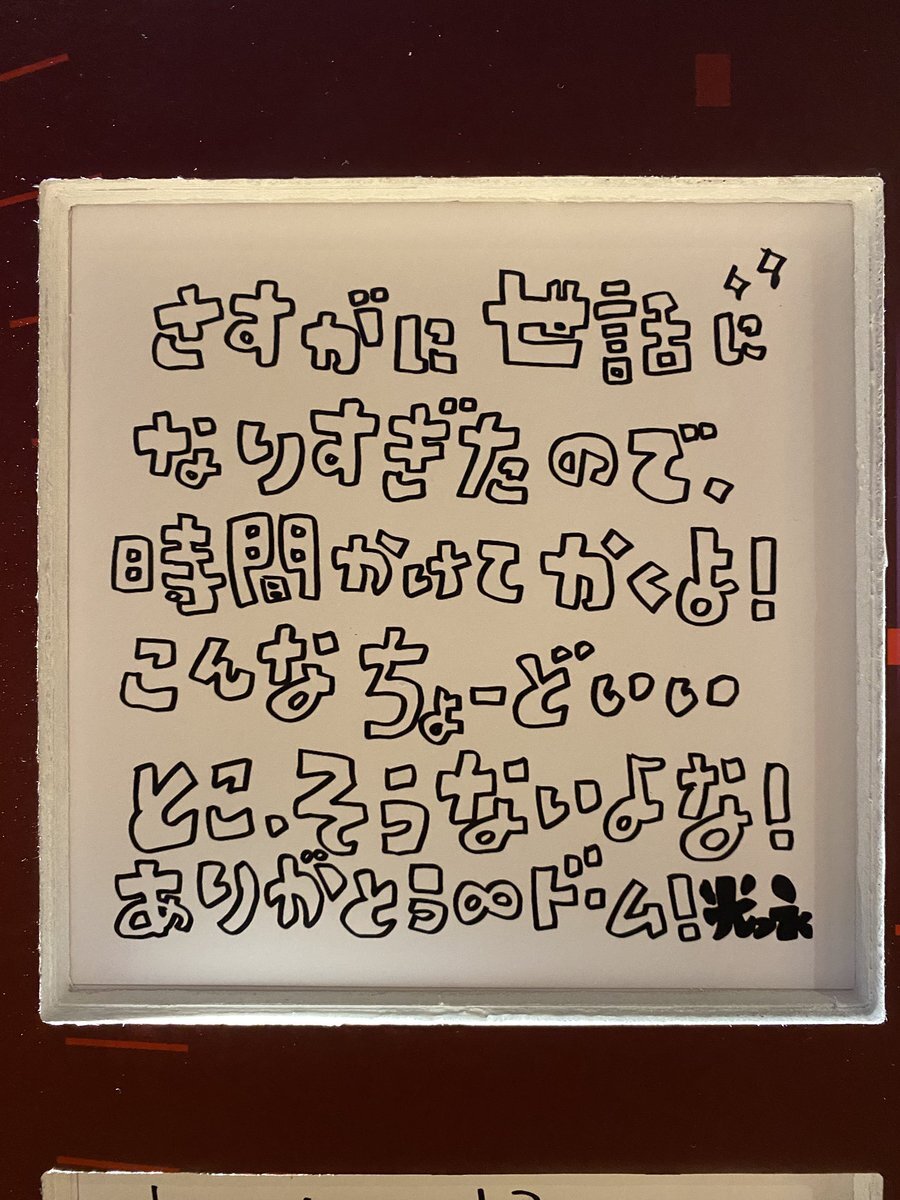 さすがに世話に
なりすぎたので、
時間かけてかくよ!
こんなちょーどいい
とこ、そうないよな!
ありがとう∞ドーム!光永